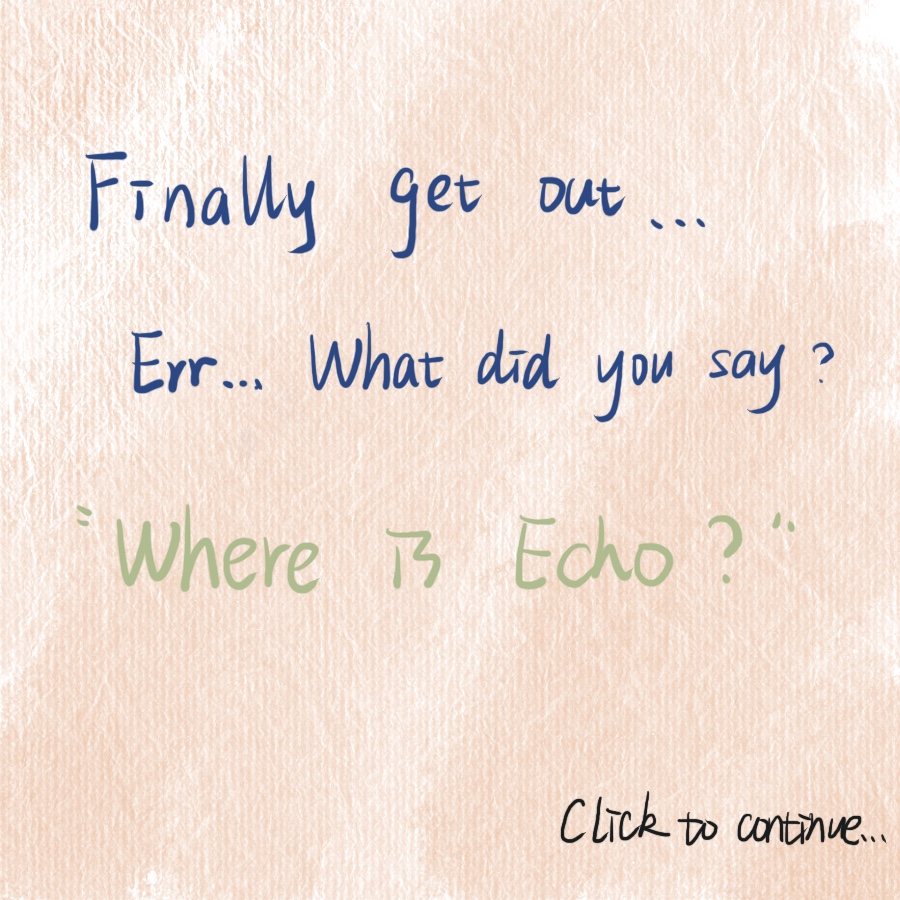 Finally get out...
Err... What did you say?
"Where is Echo?"
Click to continue...